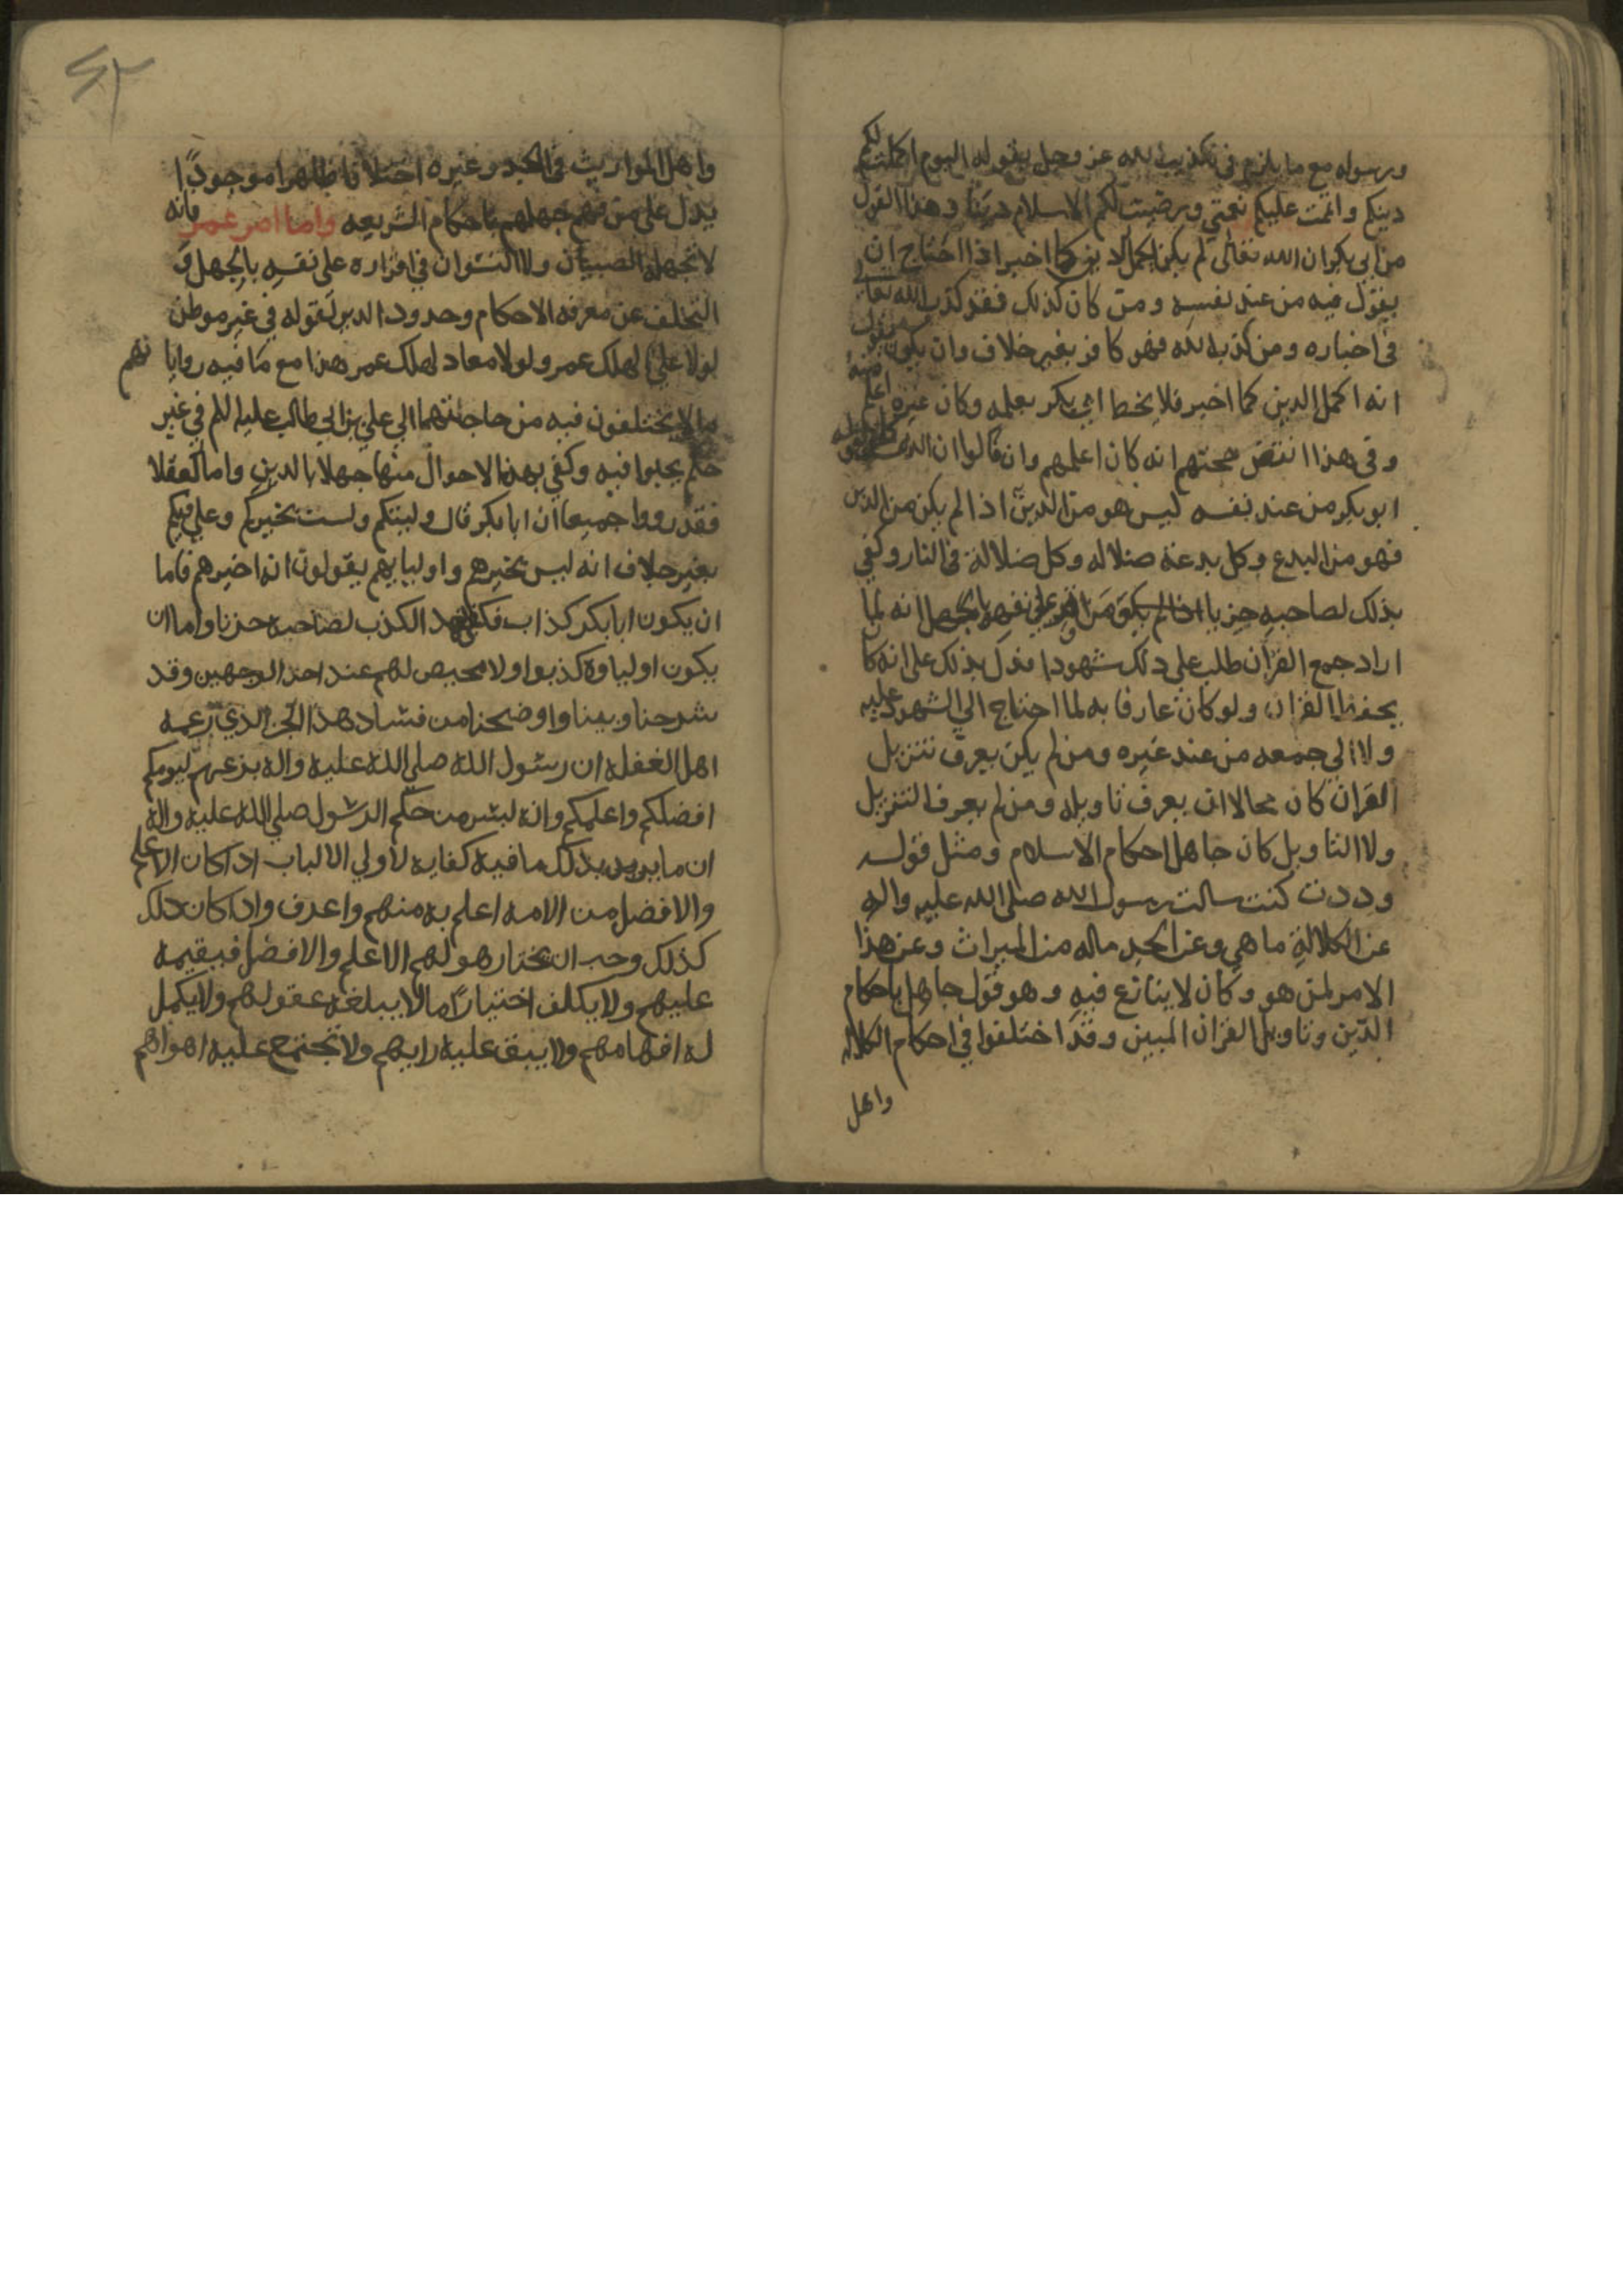 ورسوله مع ما يلزم في تكذيب الله عز وجل بقوله اليوم اكملت لكم
دينكم واتممت عليكم نعمتي ورضيت لكم الاسلام دينا وهذا القول
من ابي بكر ان الله تعالى لم يكن اكمل الدين كما اخبر اذا احتاج ان
يقول فيه من عند نفسه ومن كان كذلك فقد كذب الله تعالى
في اخباره ومن كذب الله فهو كافر بغير خلاف وان يكون يقول
انه اكمل الدين كما اخبر فلا بعلمه وكان غيره اعلم منه
وفي هذا انتقض حجتهم انه كان اعلمهم وان قالوا ان الذي
ابو بكر من عند نفسه ليس هو من الدين اذا لم يكن من الدين
فهو من البدع وكل بدعة ضلاله وكل ضلالة في النار وكفي
بذلك لصاحبه خزيا انه لما
اراد جمع القران طلب علي ذلك شهودا فدل بذلك على انه كا
يحفظ القران ولو كان عارفا به لما احتاج الي الشهود عليه
ولا الي جمعه من عند غيره ومن لم يكن يعرف تنزيل
القران كان محالا ان يعرف تاويله ومن لم يعرف التنزيل
ولا التاويل كان جاهل احكام الاسلام ومثل قوله
وددت كنت سالت رسول الله صلى الله عليه واله
عن الكلالة ما هي وعن الجد ماله من الميراث وعن هذا
الامر لمن هو وكان لا ينازع فيه وهو قول جاهل باحكام
الدين وتاويل القران المبين وقد اختلفوا في احكام الكلاله
واهل
٤٢
واهل المواريث في الجد وغيره اختلافا ظاهرا موجودًا
يدل على من فهم جهلهم باحكام الشريعه واما امر عمر فانه
لا تجهله الصبيان ولا النسوان في اقراره على نفسه بالجهل و
التخلف عن معرفه الاحكام وحدود الدين لقوله في غير موطن
لولا علي لهلك عمر ولولا معاد لهلك عمر هذا مع ما فيه رواياتهم
مما لا يختلفون فيه من حاجتهما الي علي بن ابي طالب عليه السلم في غير
حكم يجبوا فيه وكفي بهذا الاحوال منها جهلا بالدين واما العقلا
فقد رووا جميعا ان ابا بكر قال وليتكم ولست بخيركم وعلي فيكم
بغير خلاف انه ليس بخيرهم واوليايهم يقولون انه اخيرهم فاما
ان يكون ابا بكر كذاب الكذب لصاحبه حزنا واما ان
يكون اولياوه كذبوا ولا محيص لهم عند احد الوجهين وقد
شرحنا وبينا واوضحنا من فساد هذا الخبر الذي زعمه
اهل الغفله ان رسول الله صلي الله عليه واله بزعمهم ليومكم
افضلكم واعلمكم وانه ليس من حكم الرسول صلي الله عليه واله
ان ما بذلك ما فيه كفايه لاولي الالباب اذا كان الاعلم
والافضل من الامه اعلم به منهم واعرف واذا كان ذلك
كذلك وجب ان يختار هو لهم الاعلم والافضل فيقيمه
عليهم ولا يكلف اختيارًا ما لا يبلغه عقولهم ولا يكمل
له افهامهم ولا عليه رايهم ولا تجتمع عليه اهواهم